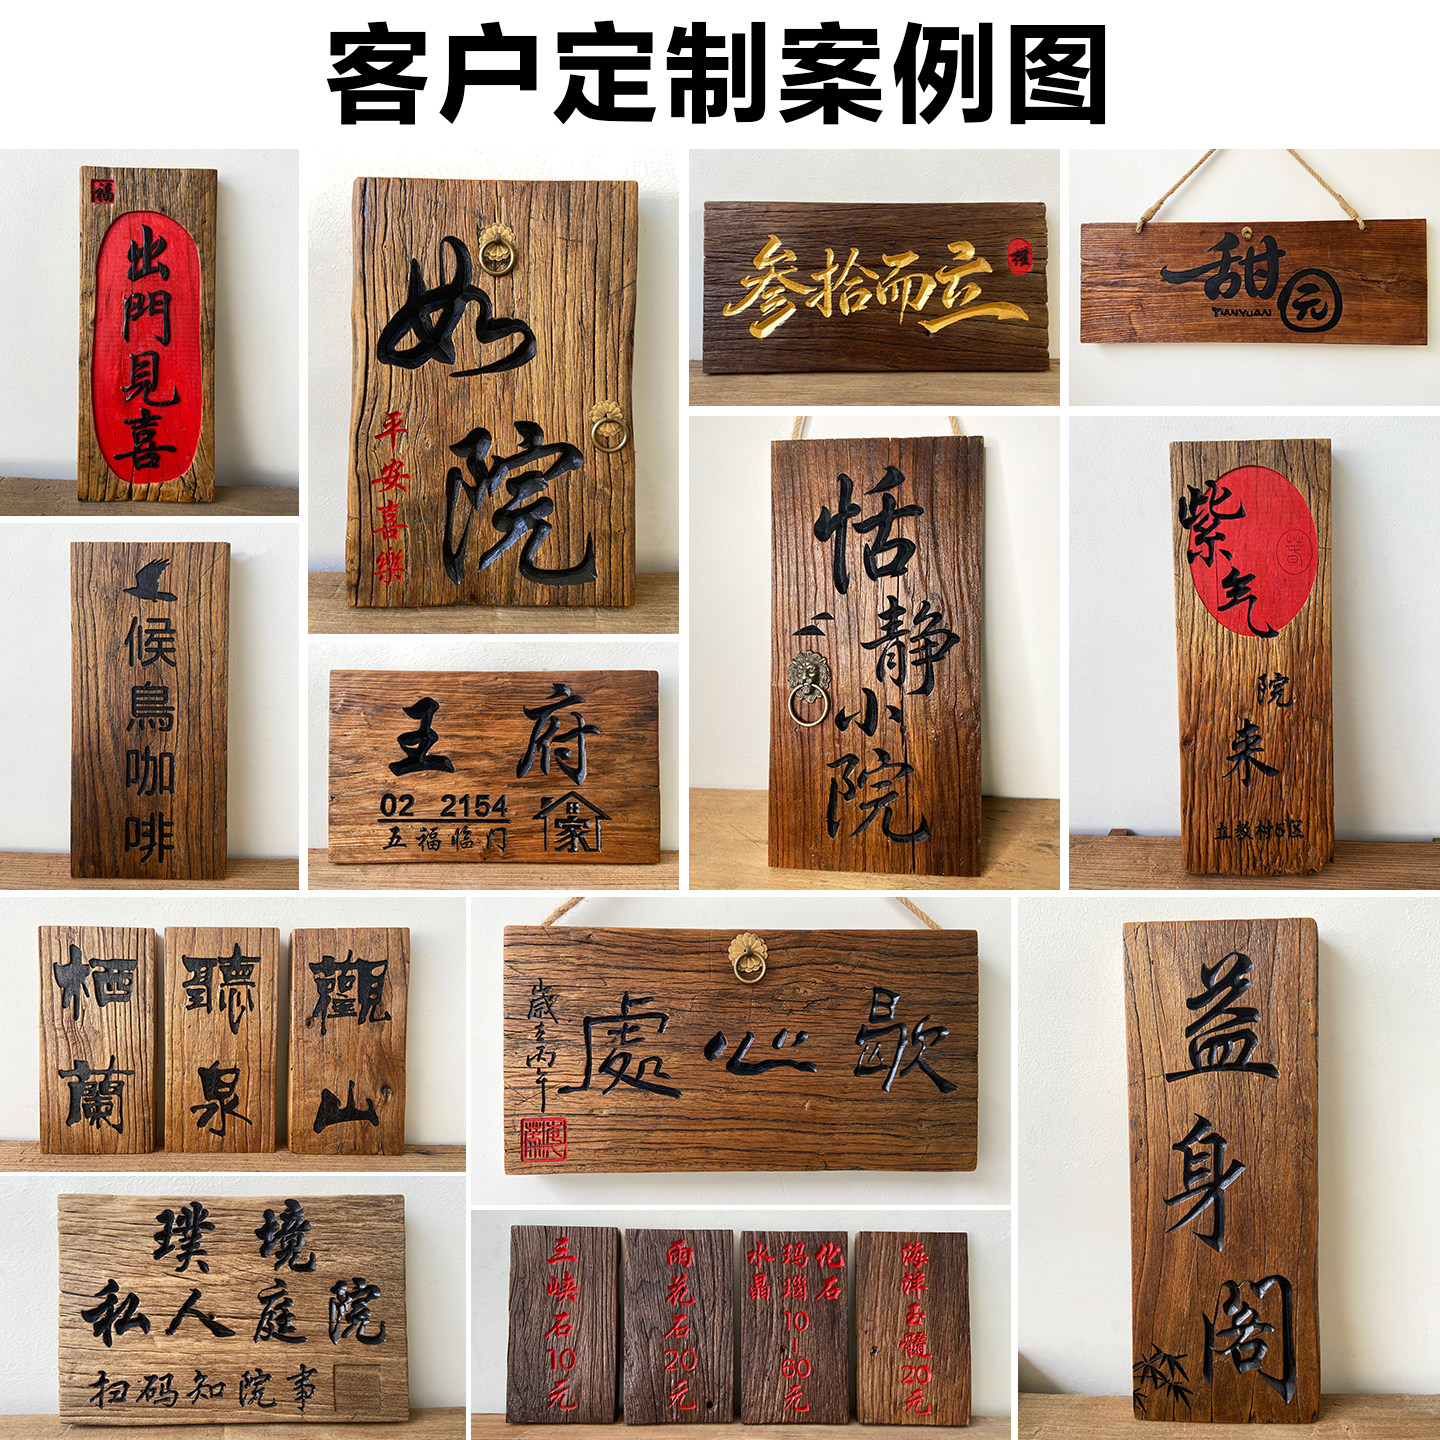 客户定制案例图
福
出門見喜
如院
平安喜樂
叁拾而立
甜元
TIANYUAN
候鳥咖啡
王府
02 2154
五福临门
家
恬静小院
紫气
院来
立教村5区
栖蘭
聽泉
觀山
歇心處
歲在丙午
璞境
私人庭院
扫码知院事
三峡石10元
雨花石20元
化石
玛瑙10-60元
水晶
海洋玉髓20元
益身阁